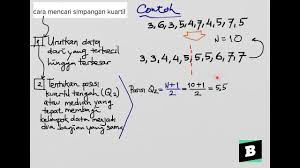 cara mencari simpangan kuartil
Contoh
3, 6, 3, 5, 4, 7, 4, 5, 7, 5
N = 10
3, 3, 4, 4, 5, 5, 5, 6, 7, 7
1 Urutkan data
dari yang terkecil
hingga terbesar
2 Tentukan posisi
kuartil tengah (Q2)
atau median yang
tepat membagi
kelompok data menjadi
dua bagian yang sama
Posisi Q2 = N+1/2 = 10+1/2 = 5,5
B